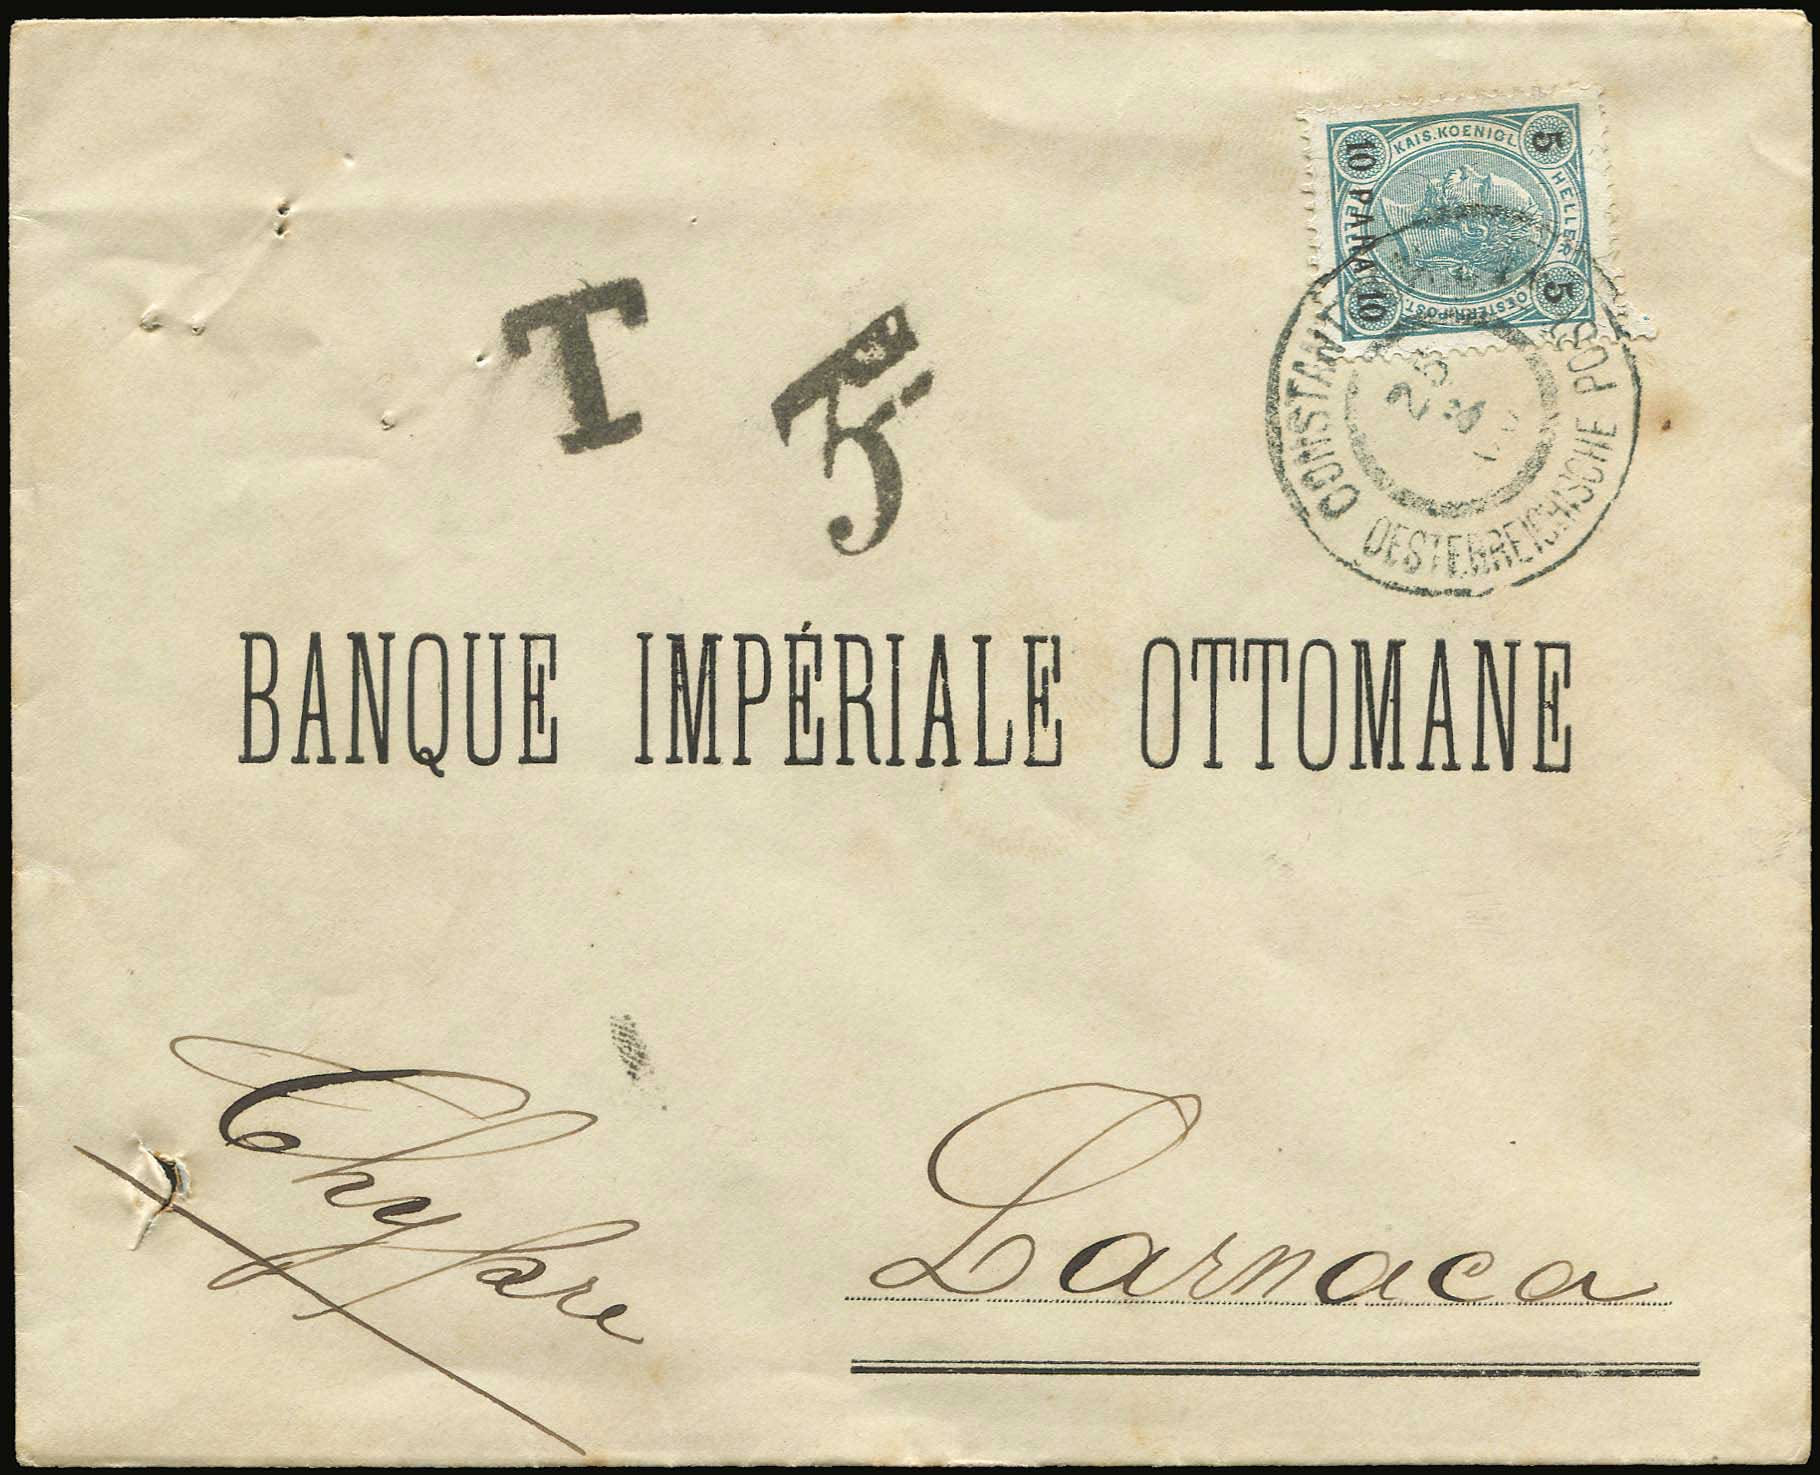 KAIS. KOENIGL. OESTERR. POST.
5 HELLER 5
10 PARA 10
T
5
CONSTANT
25
OESTERREICHISCHE POST
BANQUE IMPÉRIALE OTTOMANE
Chypre
Larnaca